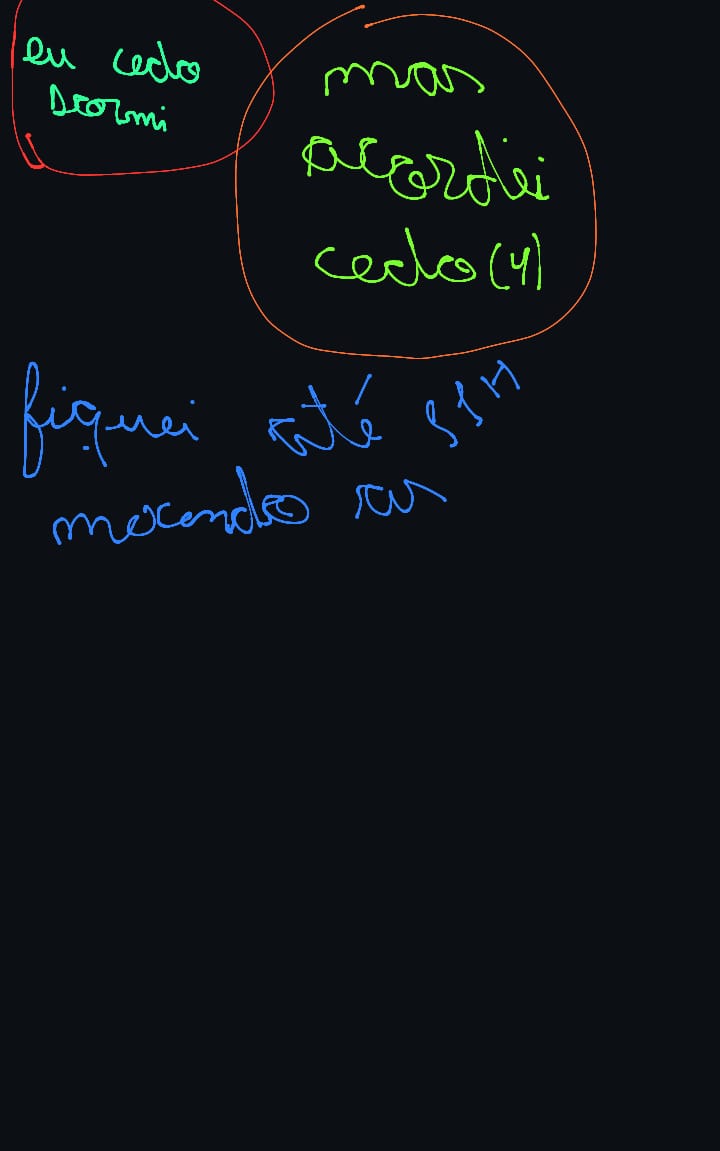 eu cedo
Dormi
mas
acordei
cedo (4)
fiquei até 11H
mexendo